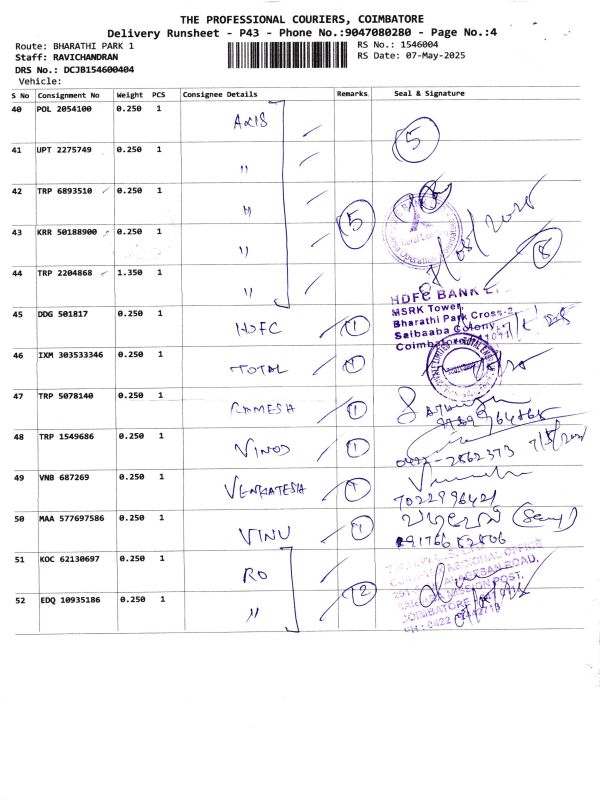 THE PROFESSIONAL COURIERS, COIMBATORE
Delivery Runsheet - P43 - Phone No.:9047080280 - Page No.:4
Route: BHARATHI PARK 1
RS No.: 1546004
Staff: RAVICHANDRAN
RS Date: 07-May-2025
DRS No.: DCJB154600404
Vehicle:
S No Consignment No Weight PCS Consignee Details Remarks Seal & Signature
40 POL 2054100 0.250 1 AXIS
41 UPT 2275749 0.250 1 " 5
42 TRP 6893510 0.250 1 "
43 KRR 50188900 0.250 1 " 5 8
44 TRP 2204868 1.350 1 "
HDFC BANK
MSRK Tower,
45 DDG 501817 0.250 1 HDFC 1
Bharathi Park Cross-2
Saibaaba Colony,
46 IXM 303533346 0.250 1 TOTAL 1
47 TRP 5078140 0.250 1 RAMESH 1
48 TRP 1549686 0.250 1 VINOD 1
0422-2862373
49 VNB 687269 0.250 1 VENKATESH 1
7022996421
50 MAA 577697586 0.250 1 VINU 1
51 KOC 62130697 0.250 1 RO
REGIONAL OFFICE
52 EDQ 10935186 0.250 1 " 2
MISSION POST,
COIMBATORE